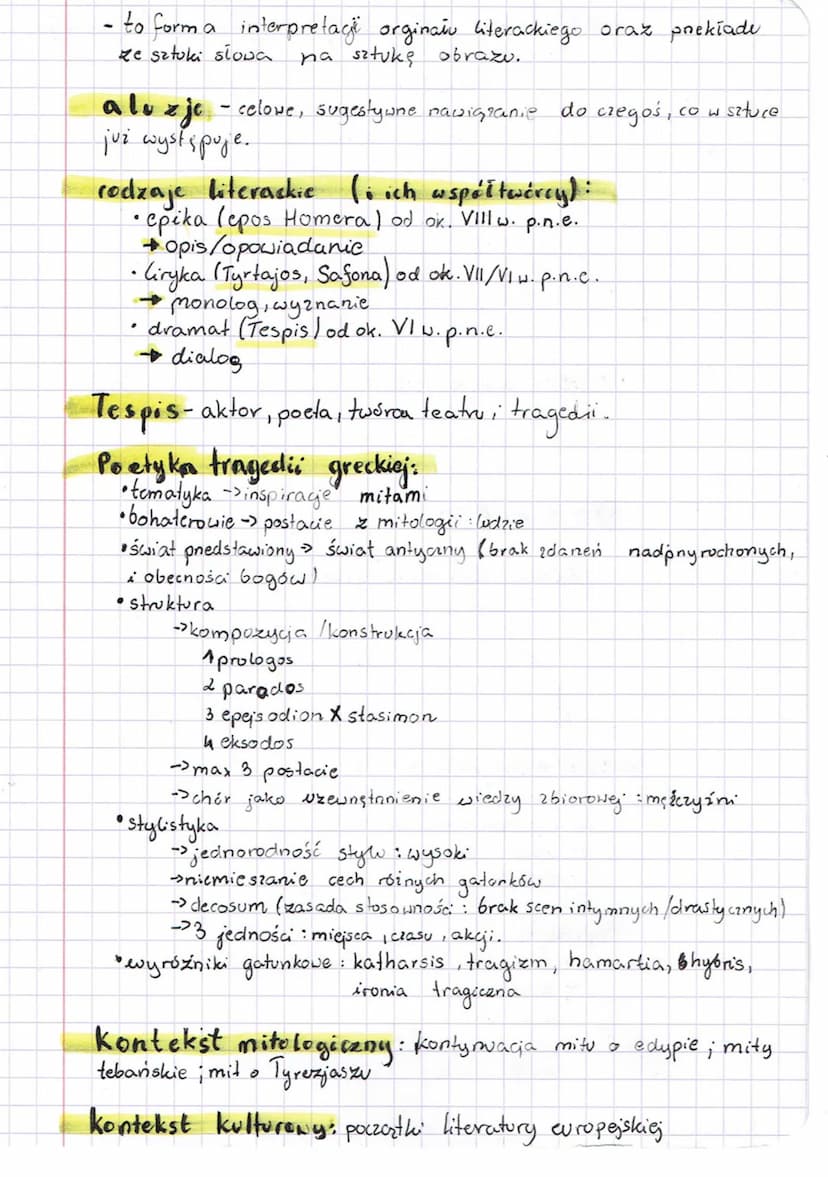 - to forma interpretacji orginału literackiego oraz przekładu
ze sztuki słowa na sztukę obrazu.
aluzje - celowe, sugestywne nawiązanie do czegoś, co w sztuce
już występuje.
rodzaje literackie (i ich współtwórcy):
• epika (epos Homera) od ok. VIII w. p.n.e.
→ opis/opowiadanie
• liryka (Tyrtajos, Safona) od ok. VII/VI w. p.n.e.
→ monolog, wyznanie
• dramat (Tespis) od ok. VI w. p.n.e.
→ dialog
Tespis - aktor, poeta, twórca teatru i tragedii.
Poetyka tragedii greckiej:
• tematyka -> inspiracje mitami
• bohaterowie -> postacie z mitologii : ludzie
• świat przedstawiony -> świat antyczny (brak zdarzeń nadprzyrodzonych,
i obecności bogów)
• struktura
-> kompozycja /konstrukcja
1 prologos
2 parados
3 epejsodion X stasimon
4 eksodos
-> max 3 postacie
-> chór jako uzewnętrznienie wiedzy zbiorowej : mężczyźni
• stylistyka
-> jednorodność stylu : wysoki
-> niemieszanie cech różnych gatunków
-> decosum (zasada stosowności : brak scen intymnych /drastycznych)
-> 3 jedności : miejsca, czasu, akcji.
• wyróżniki gatunkowe : katharsis, tragizm, hamartia, hybris,
ironia tragiczna
kontekst mitologiczny : kontynuacja mitu o edypie ; mity
tebańskie ; mit o Tyrezjaszu
kontekst kulturowy: początki literatury europejskiej